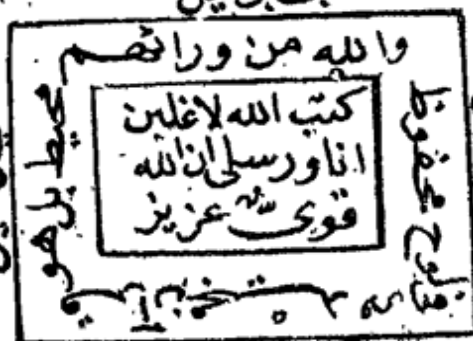 والله من ورائهم
محيط بل هو
في لوح محفوظ
كتب الله لاغلبن
انا ورسلى ان الله
قوى عزيز